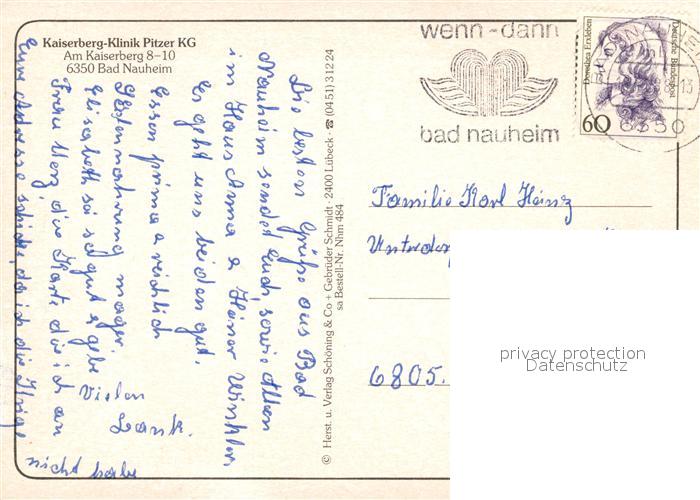 Kaiserberg-Klinik Pitzer KG
Am Kaiserberg 8–10
6350 Bad Nauheim
wenn-dann
bad nauheim
Dorothea Erxleben
Deutsche Bundespost
60
6350
Die besten Grüße aus Bad
Nauheim sendet Euch, sowie Allen
im Haus Anna & Heiner Winkler
Es geht uns beiden gut.
Essen prima reichlich
mager.
Elisabeth sei so gut & gebe
Frau Merz die Karte die ich an
Eure Adresse schicke, da ich die Ihrige
nicht habe
Vielen
Dank.
© Herst. u. Verlag Schöning & Co + Gebrüder Schmidt · 2400 Lübeck · ☎ (04 51) 3 12 24
sa Bestell-Nr. Nhm 484
Familie Karl Heinz
6805.
privacy protection
Datenschutz